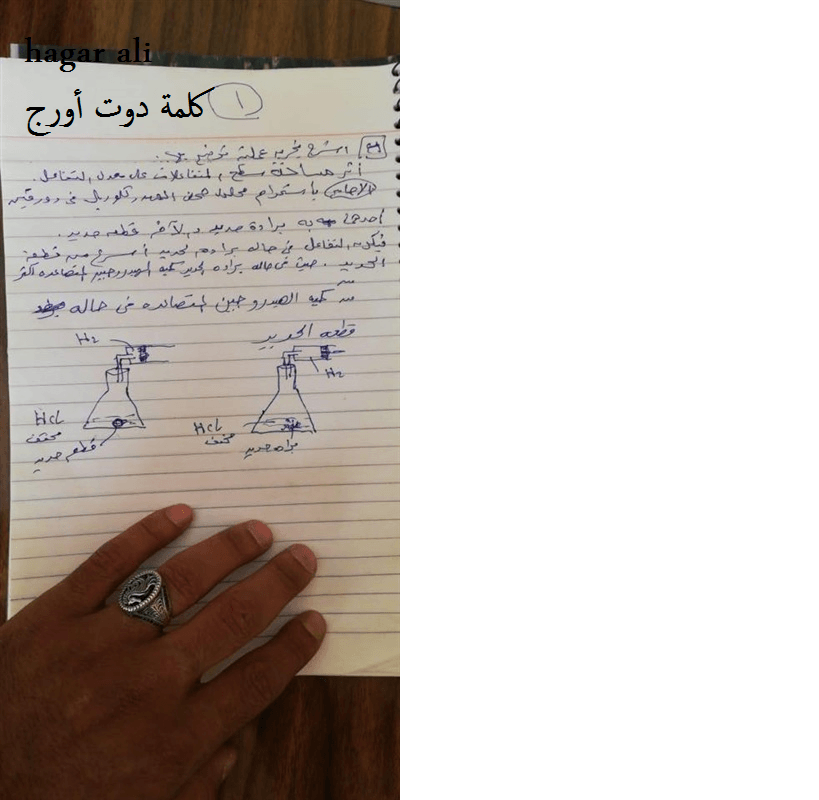 hagar ali
كلمة دوت أورج
١
اشرح تجربة عملية توضح بها :
أثر مساحة سطح المتفاعلات على معدل التفاعل.
الإجابة باستخدام محلول حمض الهيدروكلوريك فى دورقين
أحدهما به برادة حديد والآخر قطعه حديد.
فيكون التفاعل فى حاله برادة الحديد أسرع من قطعة
الحديد . حيث فى حاله براده الحديد كميه الهيدروجين المتصاعده أكبر
من كميه الهيدروجين المتصاعده فى حاله
قطعه الحديد
H2
H2
HCL
مخفف
قطعه حديد
HCL
مخفف
براده حديد